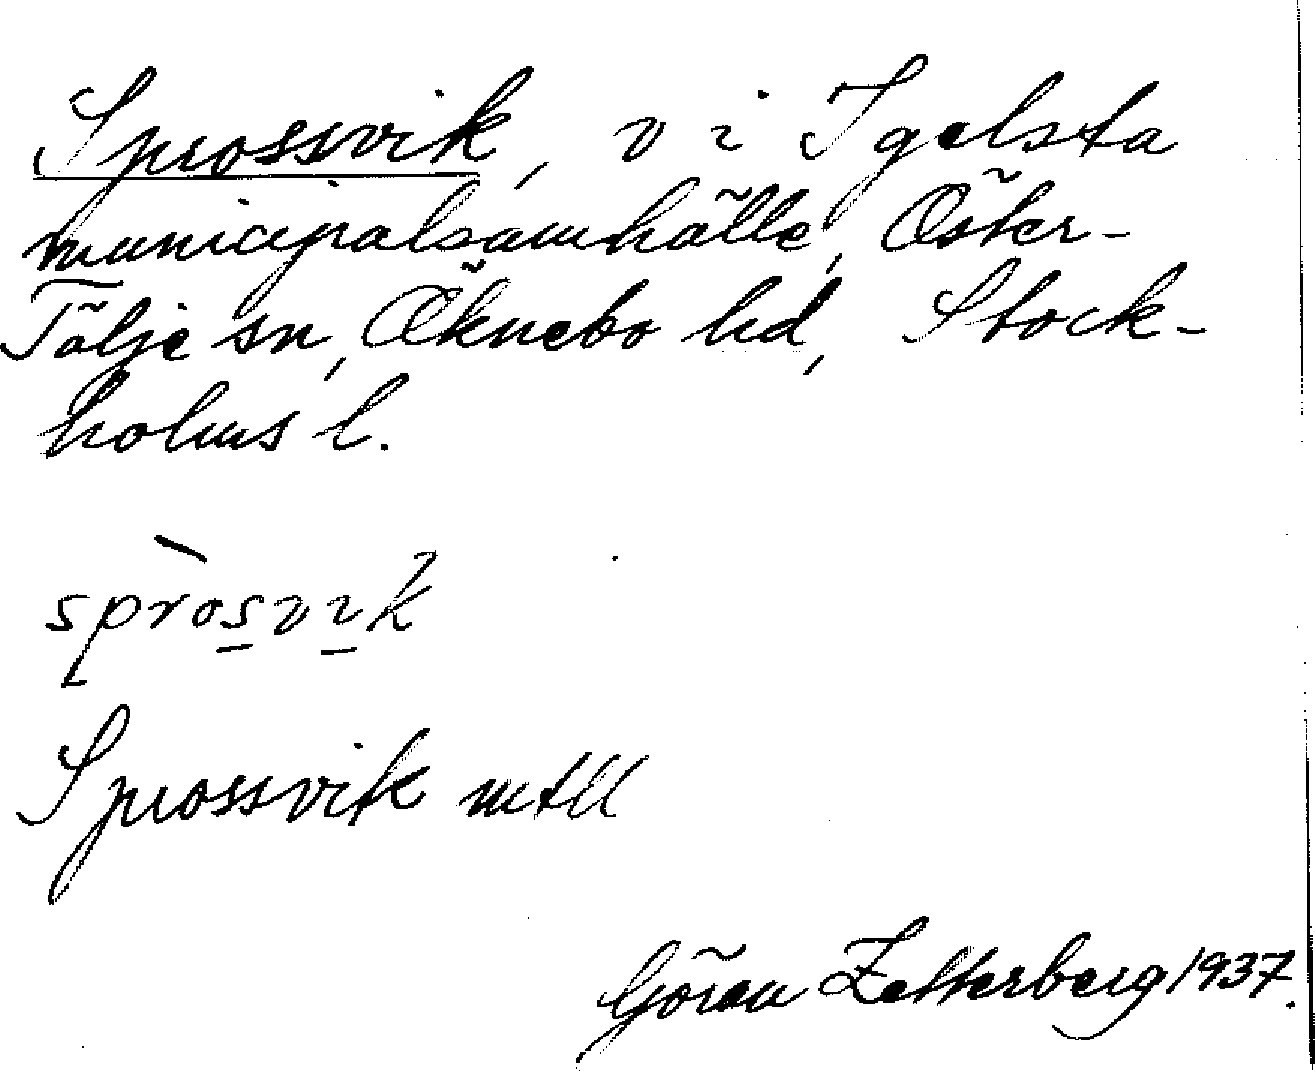 Sprossvik, v i Igelsta
municipalsamhälle, Öster-
Tälje sn, Öknebo hd, Stock-
holms l.
spròsvik
Sprossvik mtll
Göran Zetterberg 1937.